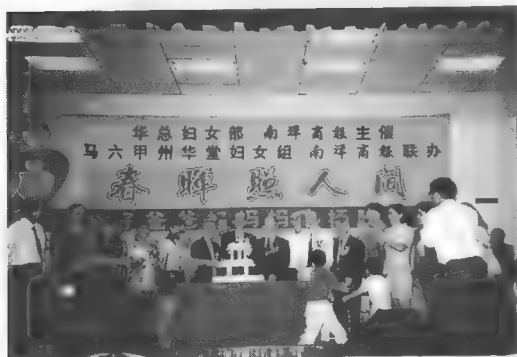 华总妇女部 南洋商报主催
马六甲州华堂妇女组 南洋商报联办
春晖照人间